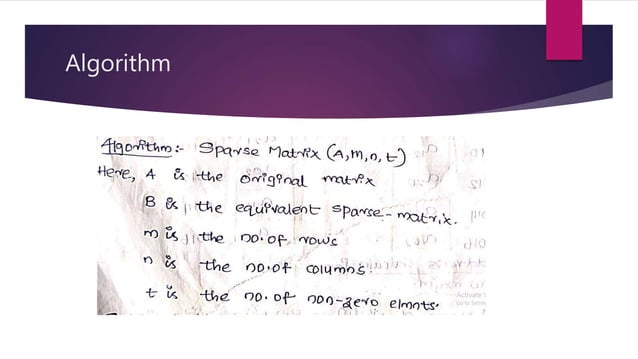 Algorithm
Algorithm:- Sparse Matrix (A,m,n,t)
Here, A is the original matrix
B is the equivalent sparse-matrix.
m is the no.of rows
n is the no.of columns.
t is the no. of non-zero elmnts.
Activate
Go to